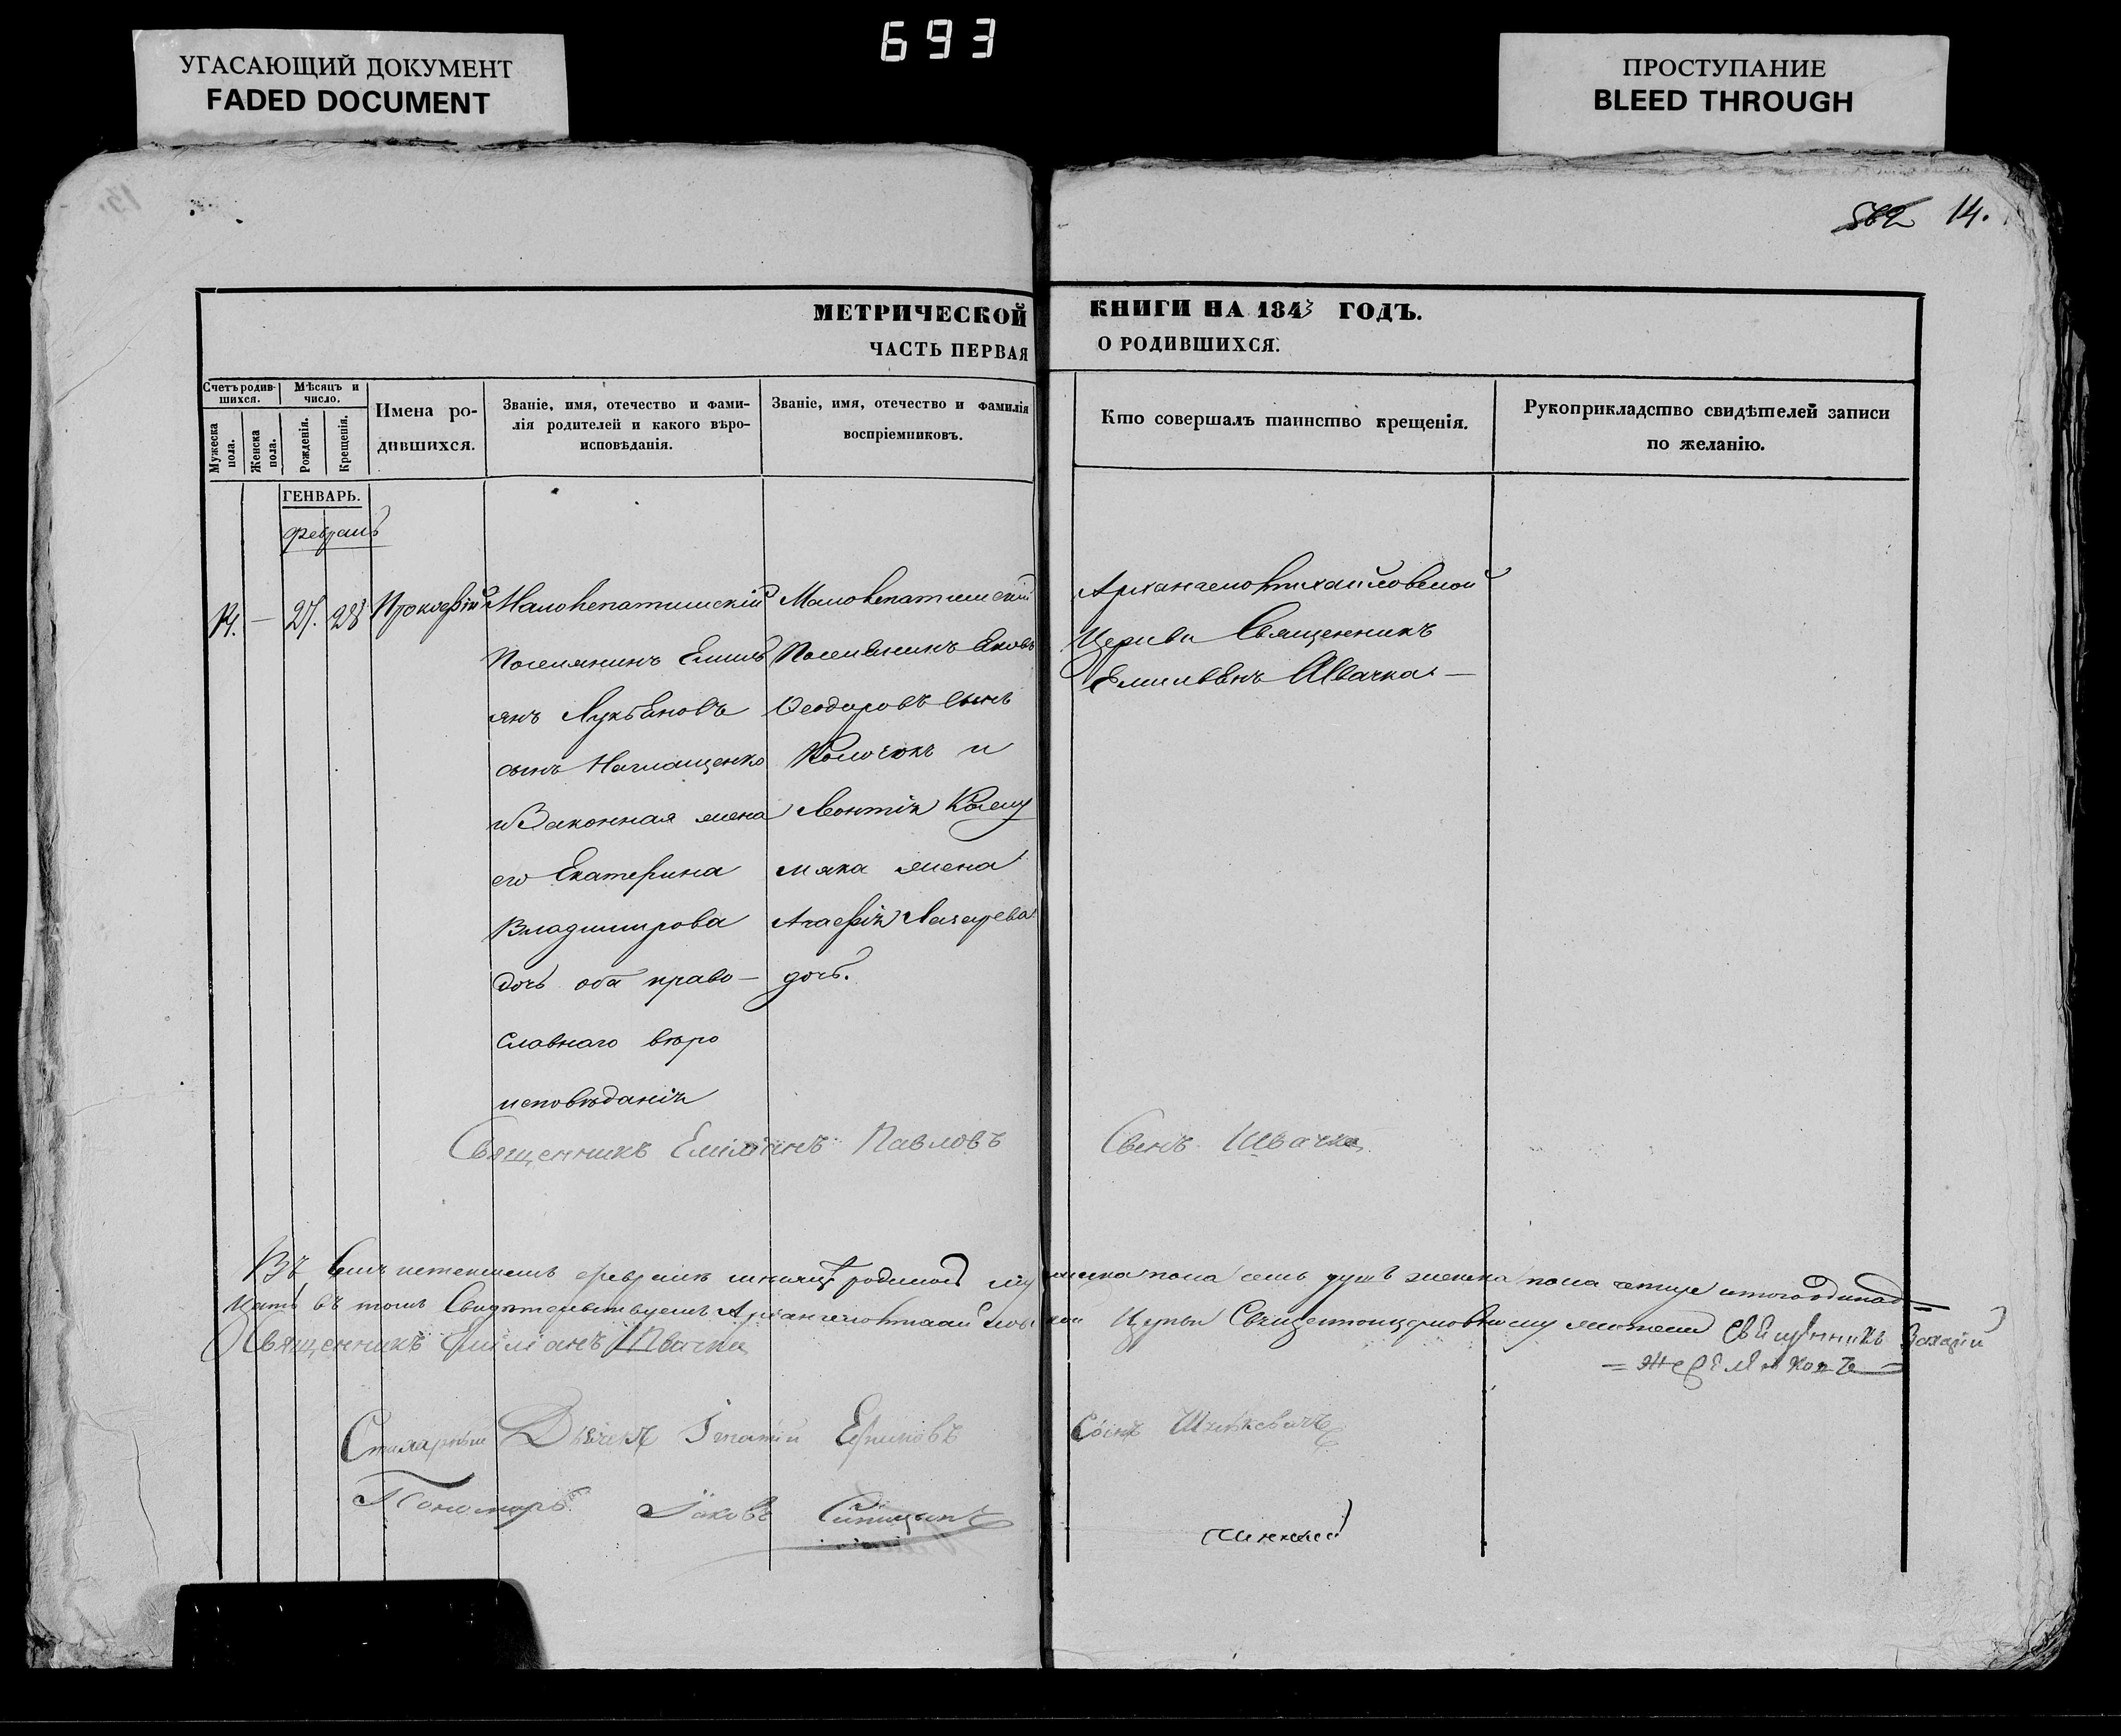 693
УГАСАЮЩИЙ ДОКУМЕНТ
FADED DOCUMENT
ПРОСТУПАНИЕ
BLEED THROUGH
562 14.
МЕТРИЧЕСКОЙ КНИГИ НА 1843 ГОДЪ.
ЧАСТЬ ПЕРВАЯ О РОДИВШИХСЯ.
Счетъ родившихся.
Мужеска пола.
Женска пола.
Мѣсяцъ и число.
Рожденія.
Крещенія.
Имена родившихся.
Званіе, имя, отечество и фамилія родителей и какого вѣроисповѣданія.
Званіе, имя, отечество и фамилія воспріемниковъ.
Кто совершалъ таинство крещенія.
Рукоприкладство свидѣтелей записи по желанію.
ГЕНВАРЬ.
Февраль
— 27. 28 Прокофій
Поселянинъ Емиль
янъ Лукьяновъ
сынъ
и Законная жена
его Екатерина
Владимирова
дочь оба право—
славнаго вѣро
исповѣданія
Поселянинъ Яковъ
Феодоровъ сынъ
и
Леонтія
жена
Агафія Лазарева
дочь.
Архангело Михайловской
Церкви Священникъ
Емиліянъ Швачка —
Священникъ Емиліянъ Павловъ Сынъ Швачка
Въ семъ истекшемъ февралѣ мѣсяцѣ родилось мужеска пола семь душъ женска пола четыре итого одинад=
цать въ томъ Свидѣтельствуемъ Архангело Михайловской Церкви
Священникъ Еміліанъ Швачка
Священникъ Захарій
Дьячекъ Игнатій Сынъ
Пономарь Іаковъ Синицынъ